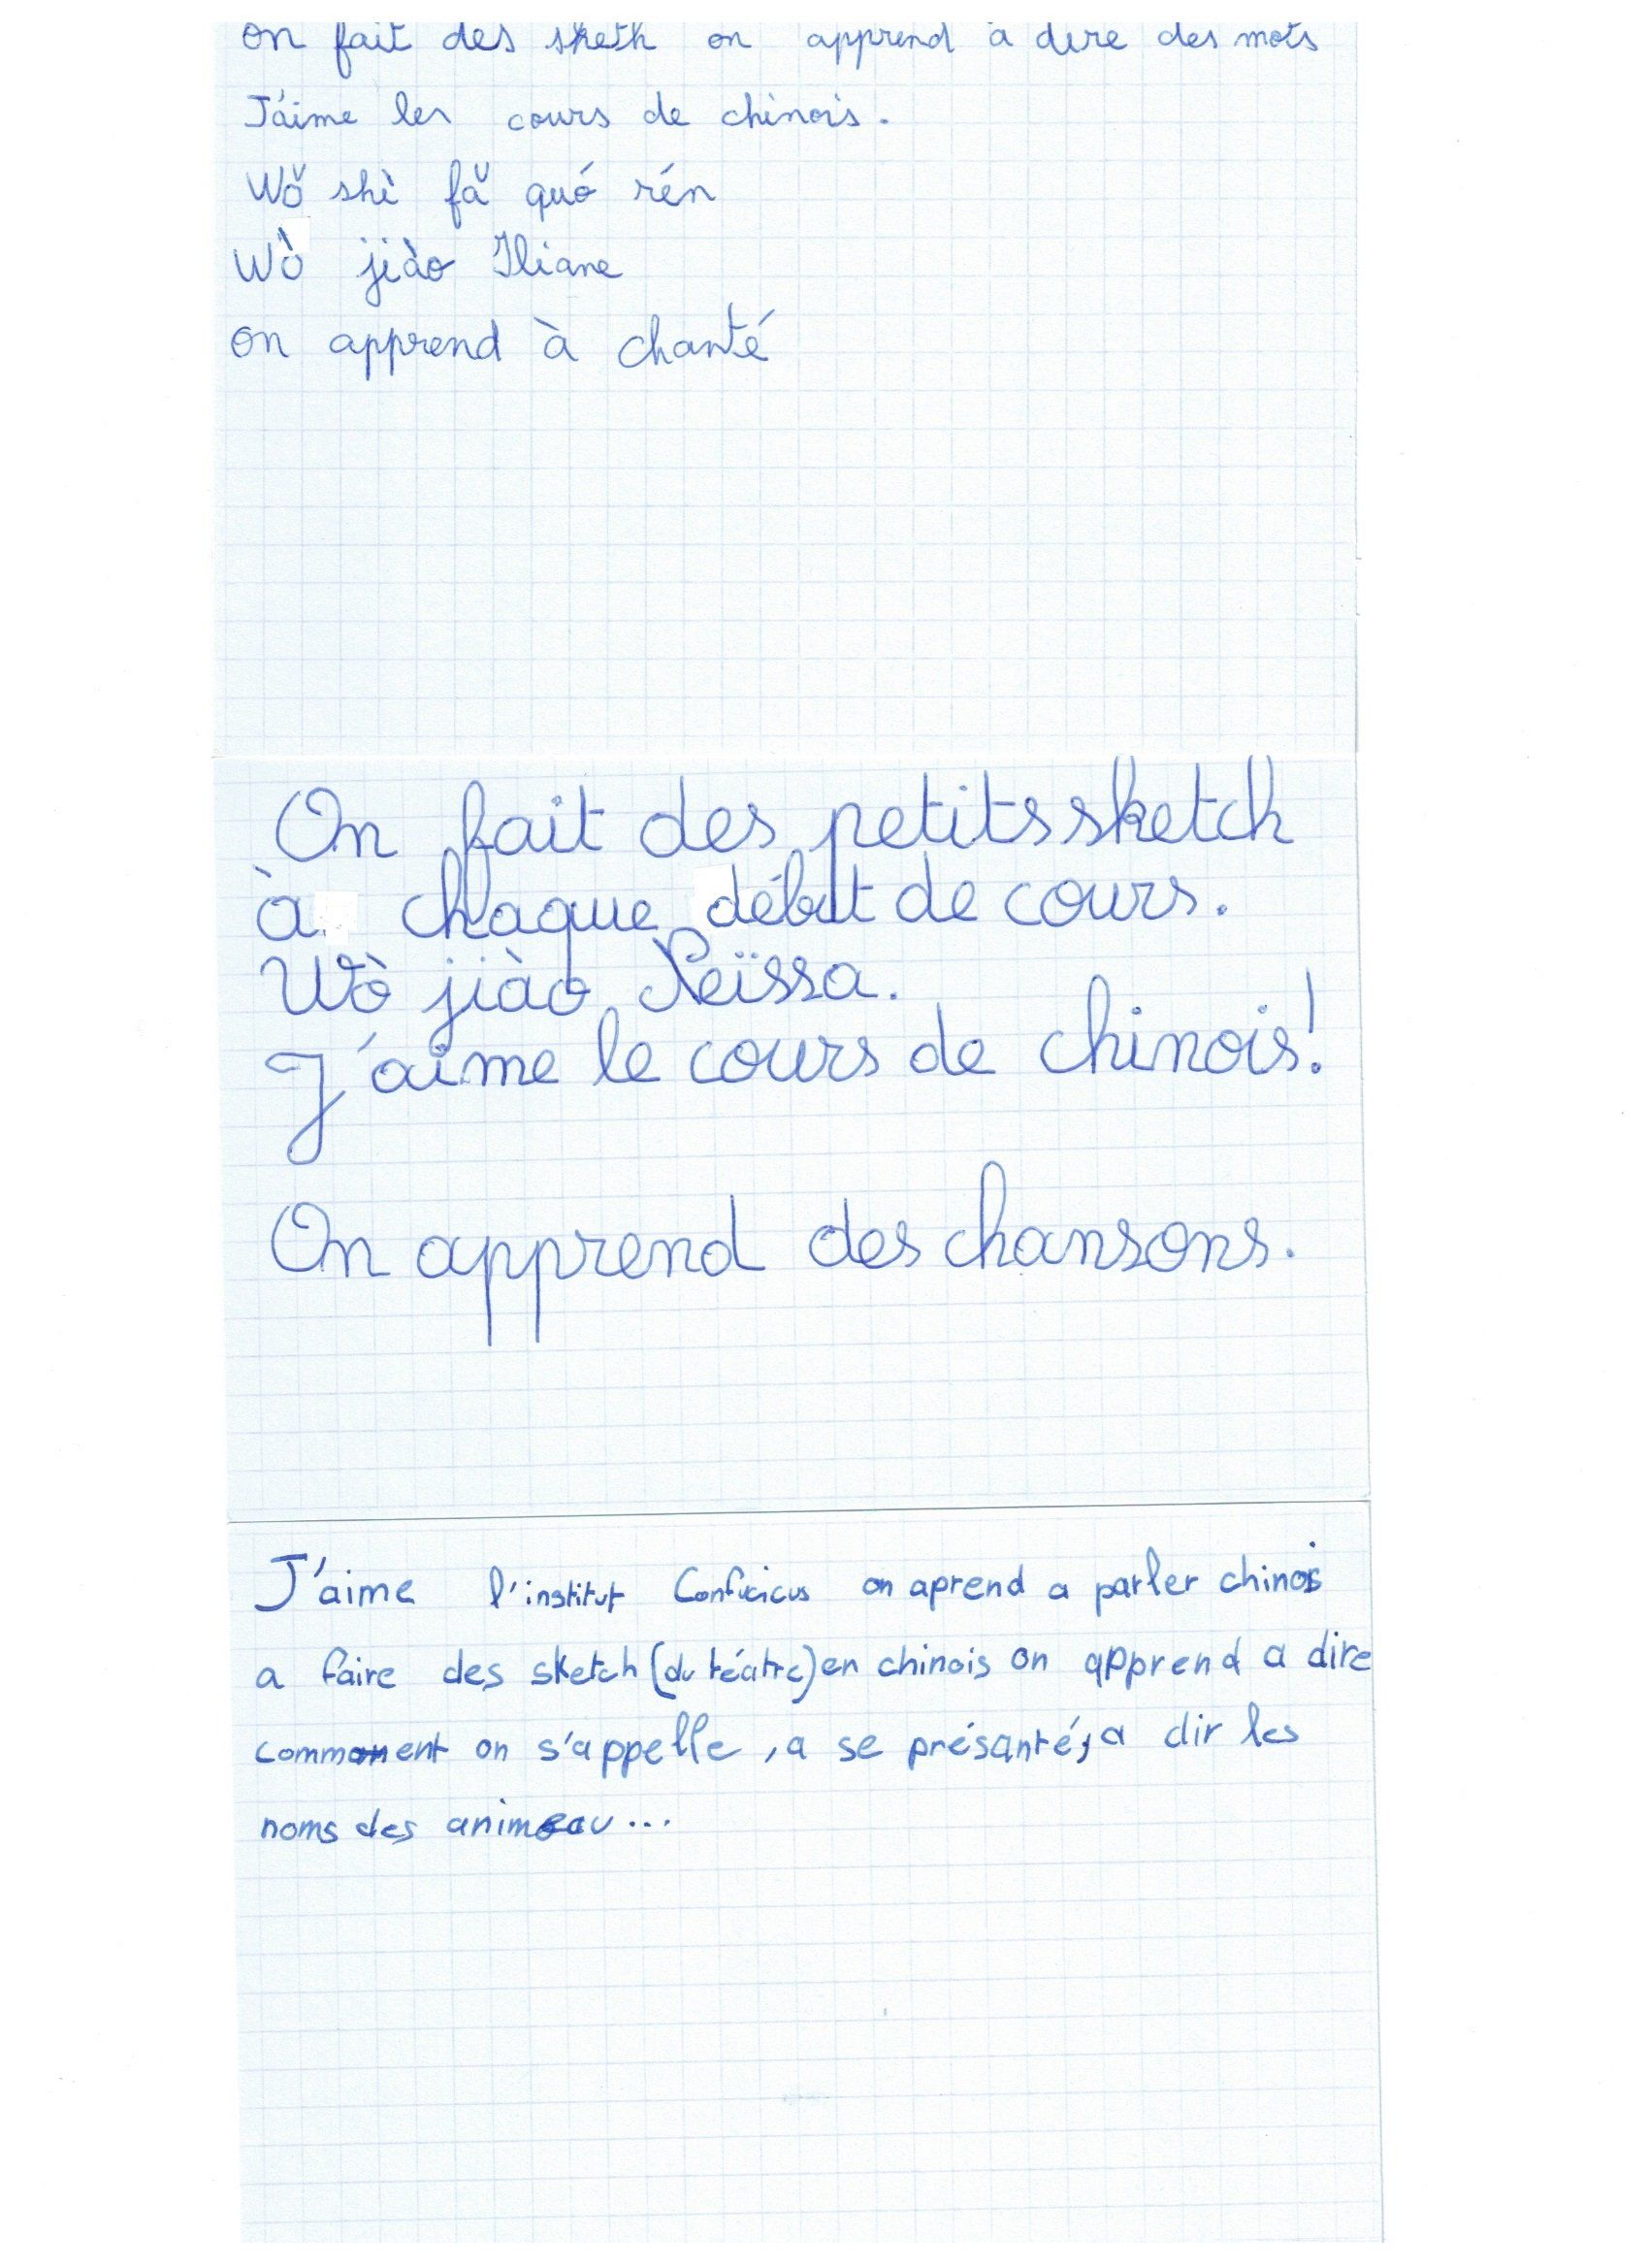 on fait des sketh on apprend a dire des mots
J'aime les cours de chinois.
Wǒ shì fǎ quó rén
Wò jiào Iliane
on apprend à chanté
On fait des petits sketch
à chaque début de cours.
Wò jiào Neïssa.
J'aime le cours de chinois!
On apprend des chansons.
J'aime l'institut Confucicus on aprend a parler chinois
a faire des sketch (du téatre) en chinois on apprend a dire
comment on s'appelle, a se présanté, a dir les
noms des animeau...